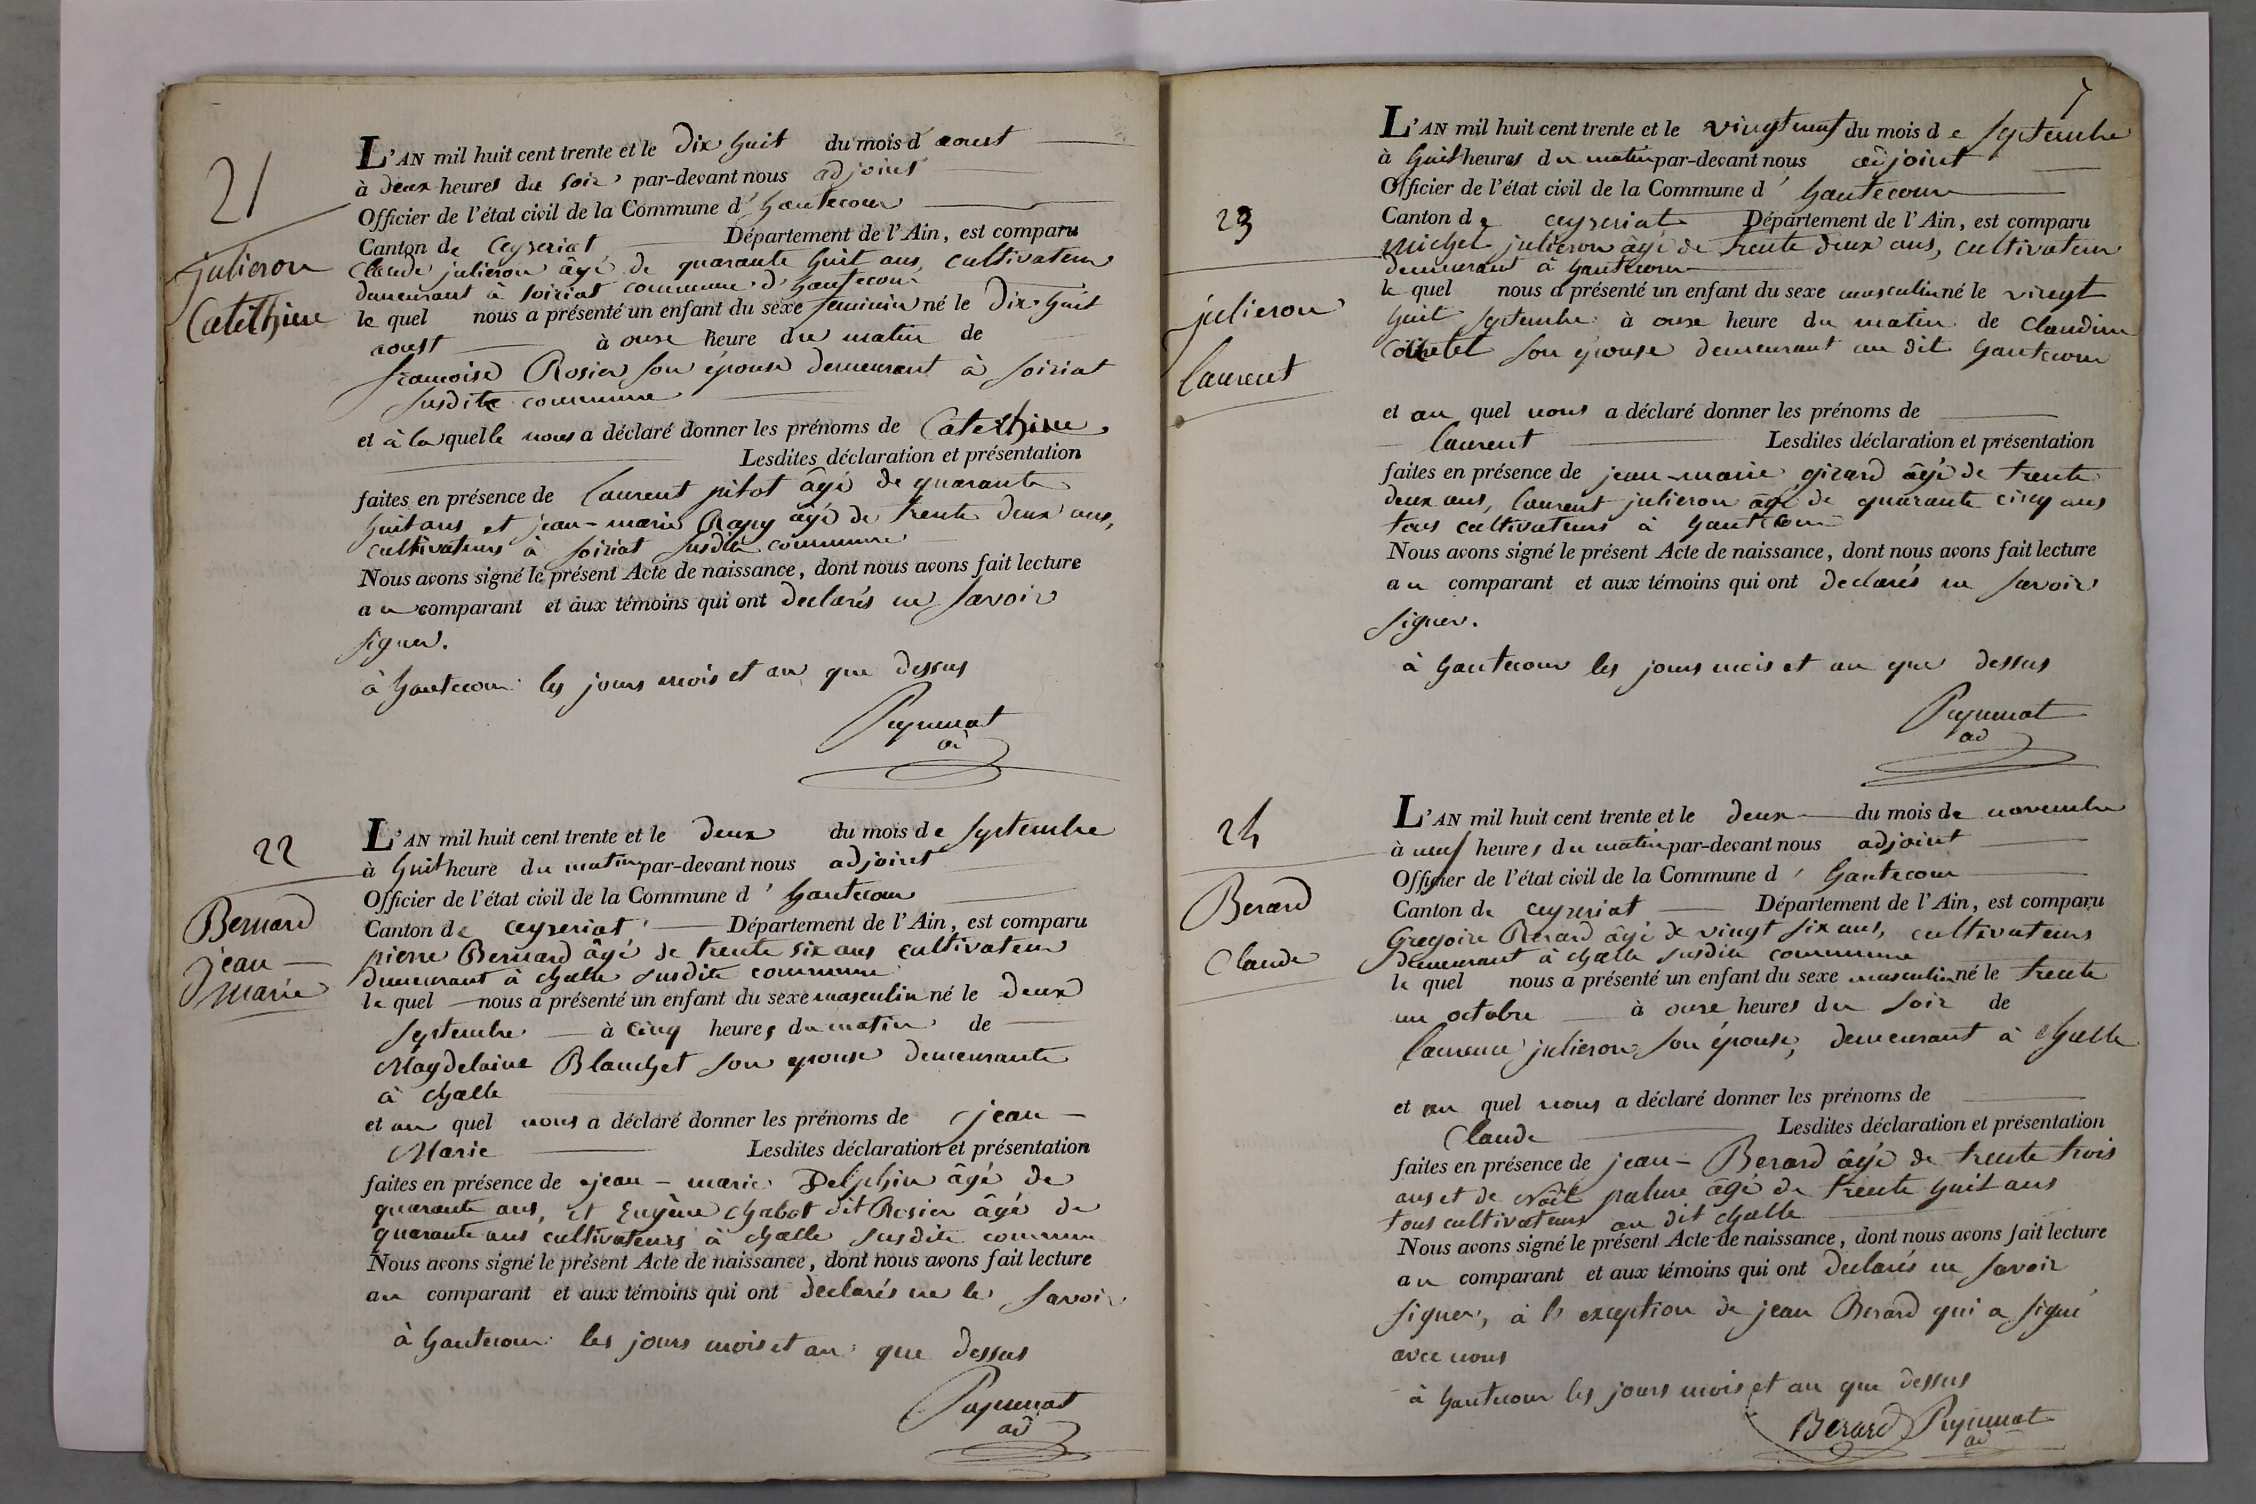 21
julieron
Catethine
L'AN mil huit cent trente et le dix huit du mois d'aoust
à deux heures du soir par-devant nous adjoint
Officier de l'état civil de la Commune d'hautecour
Canton de Ceyzeriat Département de l'Ain, est comparu
Claude julieron âgé de quarante huit ans, cultivateur
demeurant à soiriat commune d'hautecour
le quel nous a présenté un enfant du sexe feminin né le dix huit
aoust à onze heure du matin de
françoise Rosier son épouse demeurant à soiriat
susdite commune
et à la quelle nous a déclaré donner les prénoms de Catethine
Lesdites déclaration et présentation
faites en présence de Laurent pitot âgé de quarante
huit ans et jean-marie Rapy âgé de trente deux ans,
cultivateurs à soiriat susdite commune
Nous avons signé le présent Acte de naissance, dont nous avons fait lecture
au comparant et aux témoins qui ont declarés ne savoir
signer.
à hautecour les jours mois et an que dessus
ad
22
Bernard
jean
marie
L'AN mil huit cent trente et le deux du mois de septembre
à huit heure du matin par-devant nous adjoint
Officier de l'état civil de la Commune d'hautecour
Canton de ceyzeriat Département de l'Ain, est comparu
pierre Bernard âgé de trente six ans cultivateur
demeurant à challe susdite commune
le quel nous a présenté un enfant du sexe masculin né le deux
septembre à cinq heures du matin de
Magdelaine Blanchet son epouse demeurante
à challe
et au quel nous a déclaré donner les prénoms de jean
Marie Lesdites déclaration et présentation
faites en présence de jean-marie Delphin âgé de
quarante ans, et Eugène chabot dit Rosier âgé de
quarante ans cultivateurs à challe susdite commune
Nous avons signé le présent Acte de naissance, dont nous avons fait lecture
au comparant et aux témoins qui ont declarés ne le savoir
à hautecour les jours mois et an que dessus
ad
7
23
julieron
laurent
L'AN mil huit cent trente et le vingt neuf du mois de septembre
à huit heures du matin par-devant nous adjoint
Officier de l'état civil de la Commune d'hautecour
Canton de ceyzeriat Département de l'Ain, est comparu
Michel julieron âgé de trente deux ans, cultivateur
demeurant à hautecour
le quel nous a présenté un enfant du sexe masculin né le vingt
huit septembre à onze heure du matin de Claudine
son épouse demeurant au dit hautecour
et au quel nous a déclaré donner les prénoms de
laurent Lesdites déclaration et présentation
faites en présence de jean-marie girard âgé de trente
deux ans, laurent julieron âgé de quarante cinq ans
tous cultivateurs à hautecour
Nous avons signé le présent Acte de naissance, dont nous avons fait lecture
au comparant et aux témoins qui ont declarés ne savoir
signer.
à hautecour les jours mois et an que dessus
ad
24
Berard
Claude
L'AN mil huit cent trente et le deux du mois de novembre
à neuf heures du matin par-devant nous adjoint
Officier de l'état civil de la Commune d'hautecour
Canton de ceyzeriat Département de l'Ain, est comparu
Gregoire Berard âgé de vingt six ans, cultivateurs
demeurant à challe susdite commune
le quel nous a présenté un enfant du sexe masculin né le trente
un octobre à onze heures du soir de
laurence julieron son épouse, demeurant à challe
et au quel nous a déclaré donner les prénoms de
Claude Lesdites déclaration et présentation
faites en présence de jean-Berard âgé de trente trois
ans et de Noël âgé de trente huit ans
tous cultivateurs au dit challe
Nous avons signé le présent Acte de naissance, dont nous avons fait lecture
au comparant et aux témoins qui ont declarés ne savoir
signer, à l'exception de jean Berard qui a signé
avec nous
à hautecour les jours mois et an que dessus
Berard
ad